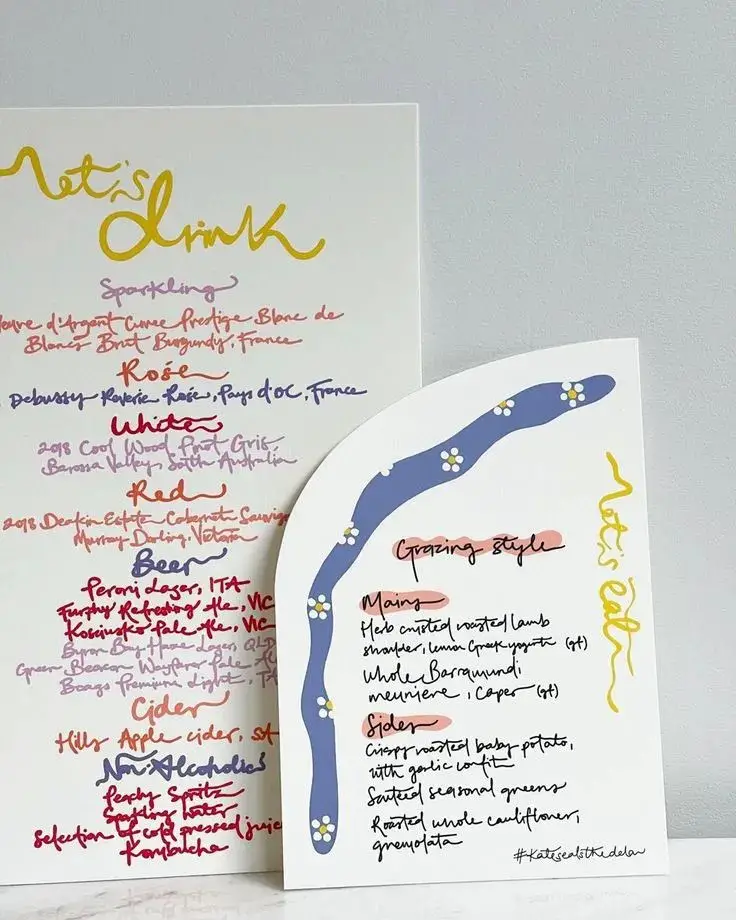 let's
drink
Sparkling
d'Argent Cuvee Prestige Blanc de
Blancs Brut Burgundy, France
Rosé
Debussy Reverie Rosé, Pays d'OC, France
White
2018 Cool Wood Pinot Gris,
Barossa Valley, South Australia
Red
2018 Deakin Estate Cabernet
Murray Darling, Victoria
Beer
Peroni Lager, ITA
Furphy Refreshing Ale, VIC
Kosciusko Pale Ale, VIC
Byron Bay Haze Lager, QLD
Green Beacon Wayfarer Pale
Boags Premium Light,
Cider
Hills Apple cider, SA
Non-Alcoholic
Peachy Spritz
Sparkling water
Selection of cold pressed
Kombucha
let's eat
Grazing style
Mains
Herb crusted roasted lamb
shoulder, lemon Greek yogurt (gf)
Whole Barramundi
meuniere, caper (gf)
Sides
Crispy roasted baby potato,
with garlic confit
Sauteed seasonal greens
Roasted whole cauliflower,
gremolata